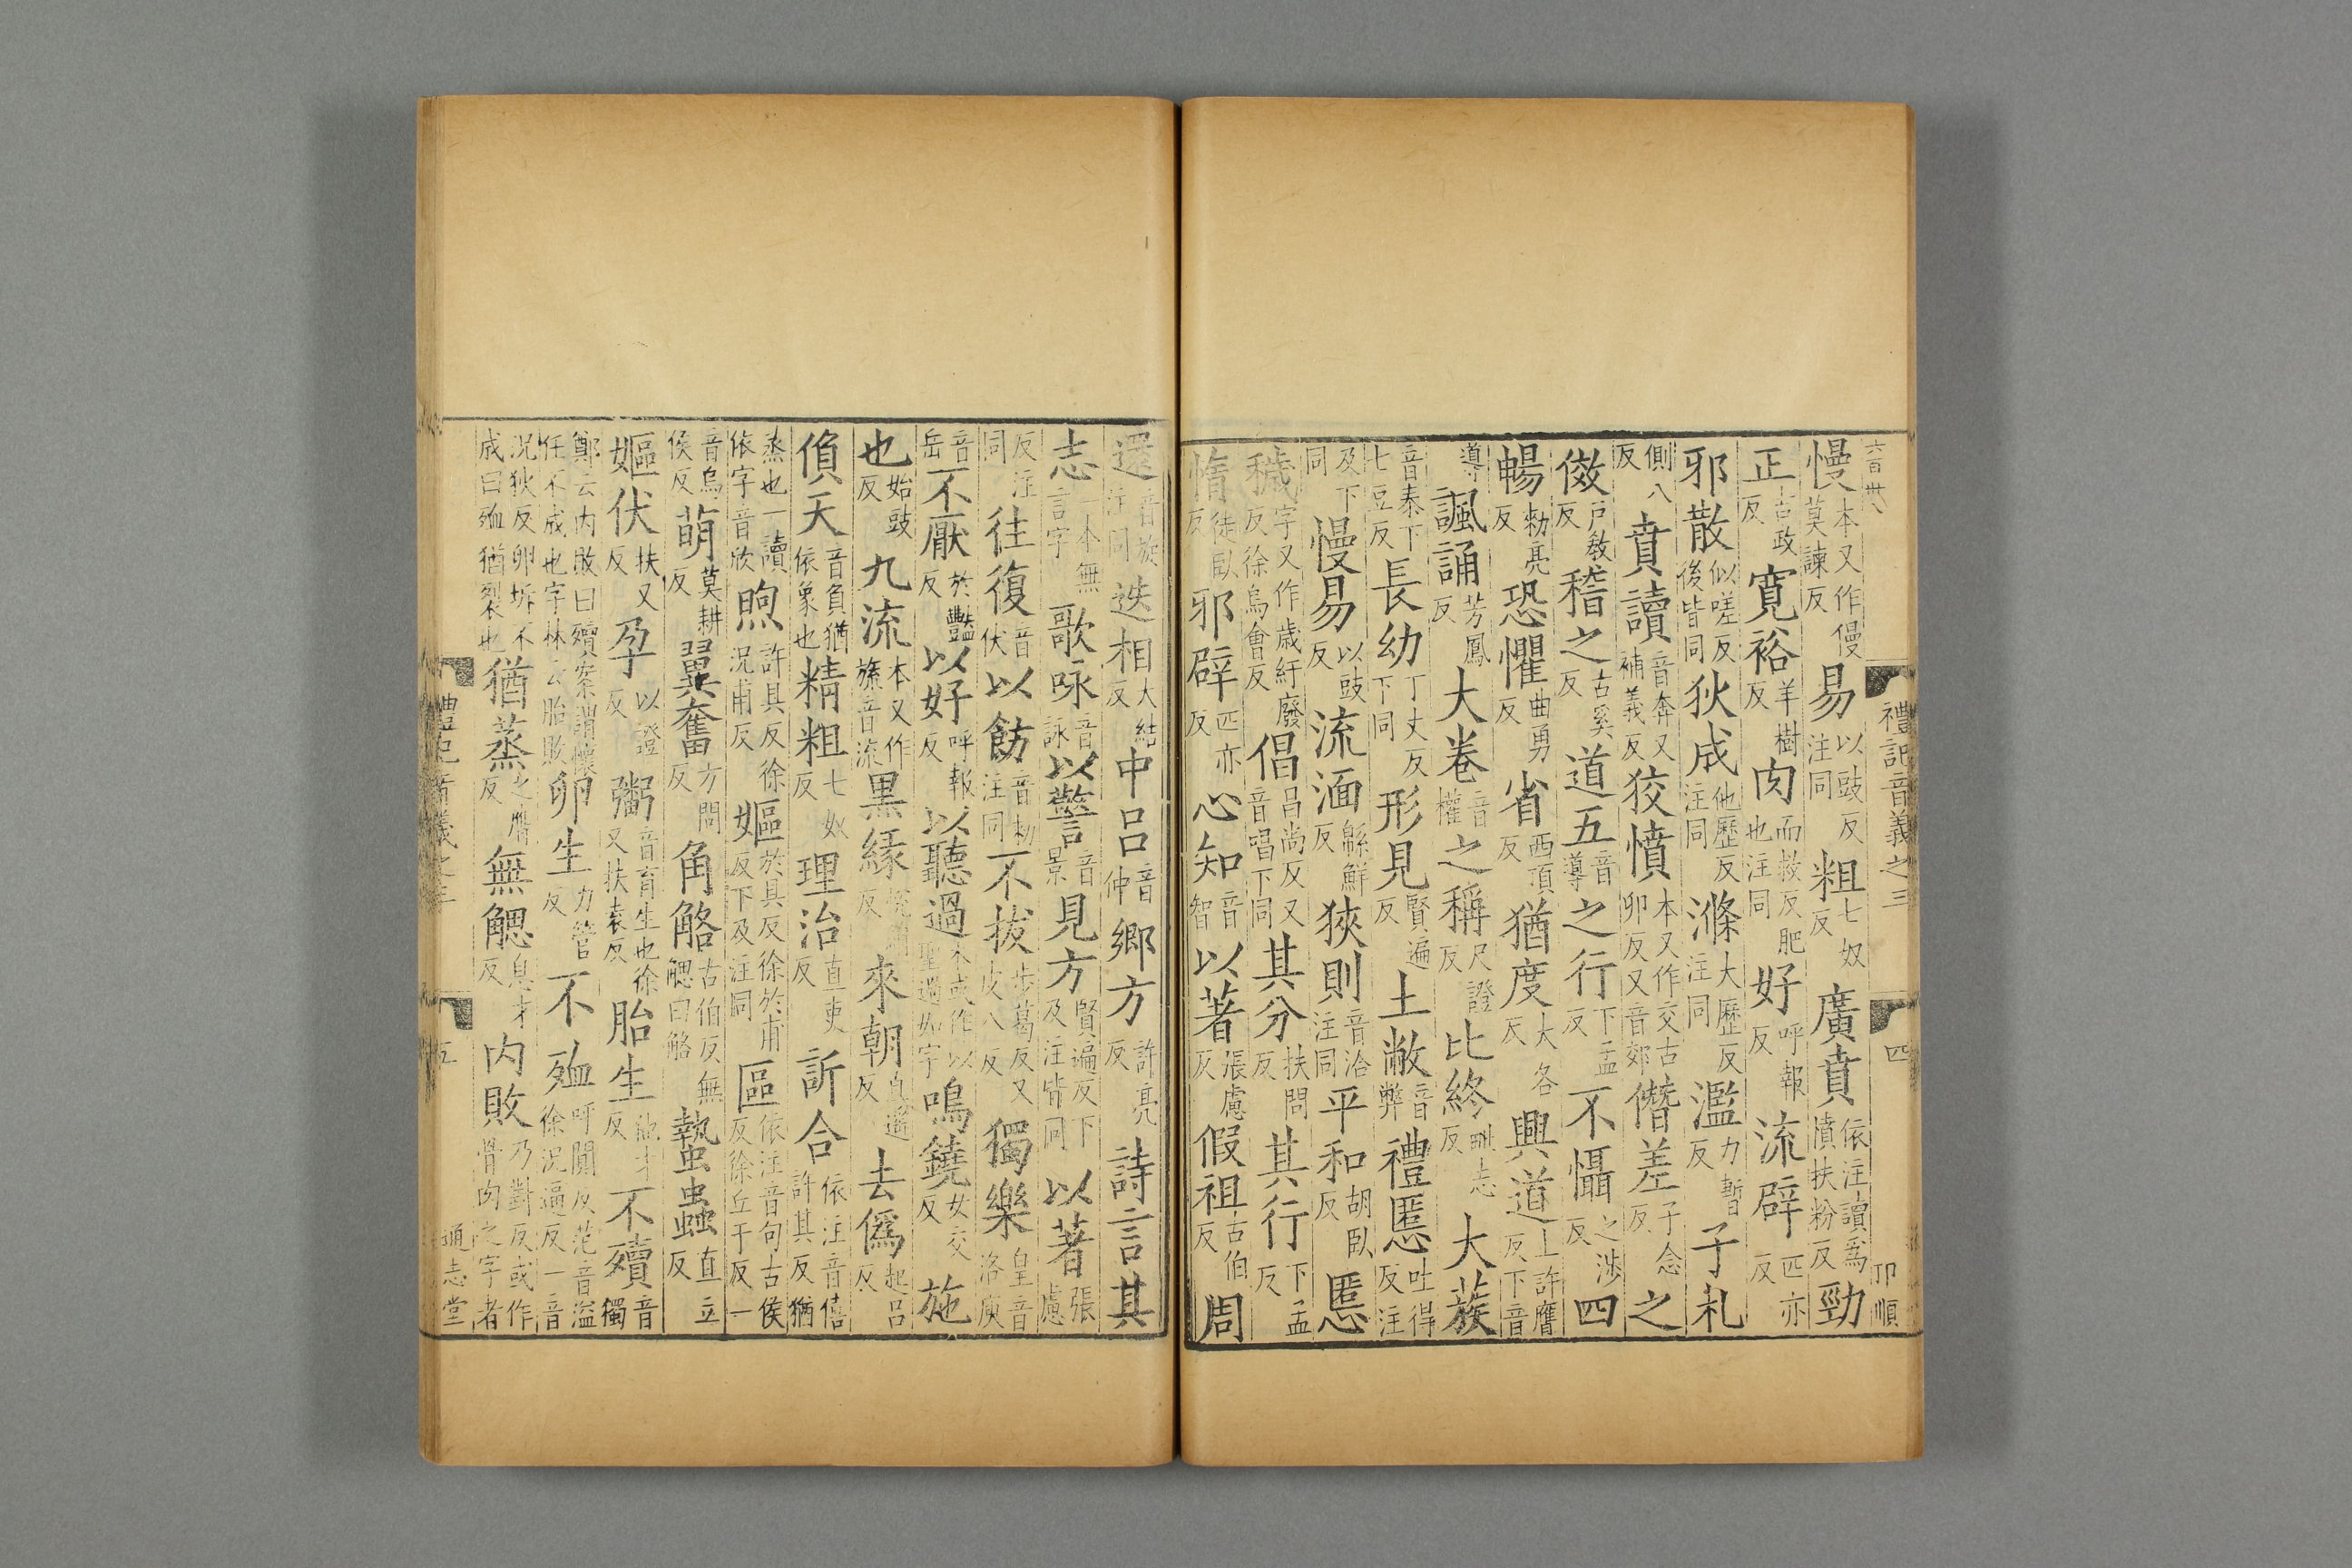 六百卅八
禮記音義之三
四
卬順
慢本又作僈莫諫反易以豉反注同粗七奴反廣賁依注讀爲憤扶粉反勁
正古政反寬裕羊樹反肉而救反肥也注同好呼報反流辟匹亦反
邪散似嗟反後皆同狄成他歷反注同滌大歷反注同濫力暫反子札
側八反賁讀音奔又補義反狡憤本又作交古卯反又音郊僭差子念反之
傚戸敎反稽之古奚反道五音導之行下孟反不懾之涉反四
暢勑亮反恐懼曲勇反省西頂反猶度大各反興道上許膺反下音
導諷誦芳鳳反大卷音權之稱尺證反比終毗志反大蔟
音泰下七豆反長幼丁丈反下同形見賢遍反土敝音弊禮慝吐得反注
及下同慢易以豉反流湎緜鮮反狹則音洽注同平和胡臥反慝
穢字又作薉紆廢反徐烏會反倡昌尚反又音唱下同其分扶問反其行下孟反
惰徒臥反邪辟匹亦反心知音智以著張慮反假祖古伯反周
還音旋注同迭相大結反中呂音仲鄉方許亮反詩言其
志一本無言字歌咏音詠以警音景見方賢遍反下及注皆同以著張慮
反注同往復音伏以飭音勑注同不拔步葛反又皮八反獨樂皇音洛庾
音岳不厭於豔反以好呼報反以聽過本或作以聖過如字鳴鐃女交反施
也始豉反九流本又作旒音流黑緣反來朝直遥反去僞起呂反
偩天音負猶依象也精粗七奴反理治直吏反訢合依注音僖許其反猶
蒸也一讀依字音欣煦許具反徐況甫反嫗於具反徐於甫反下及注同區依注音句古侯反徐丘于反一
音烏侯反萌莫耕反翼奮方問反角觡古伯反無䚡曰觡蟄蟲直立反
嫗伏扶又反孕以證反鬻音育生也徐又扶袁反胎生他才反不殰音獨
鄭云内敗曰殰案謂懷任不成也字林云胎敗卵生力管反不殈呼闃反范音溢徐況逼反一音
況狄反卵坼不成曰殈猶裂也猶蒸之膺反無䚡息才反内敗乃對反或作骨肉之字者
禮記音義之三
五
通志堂